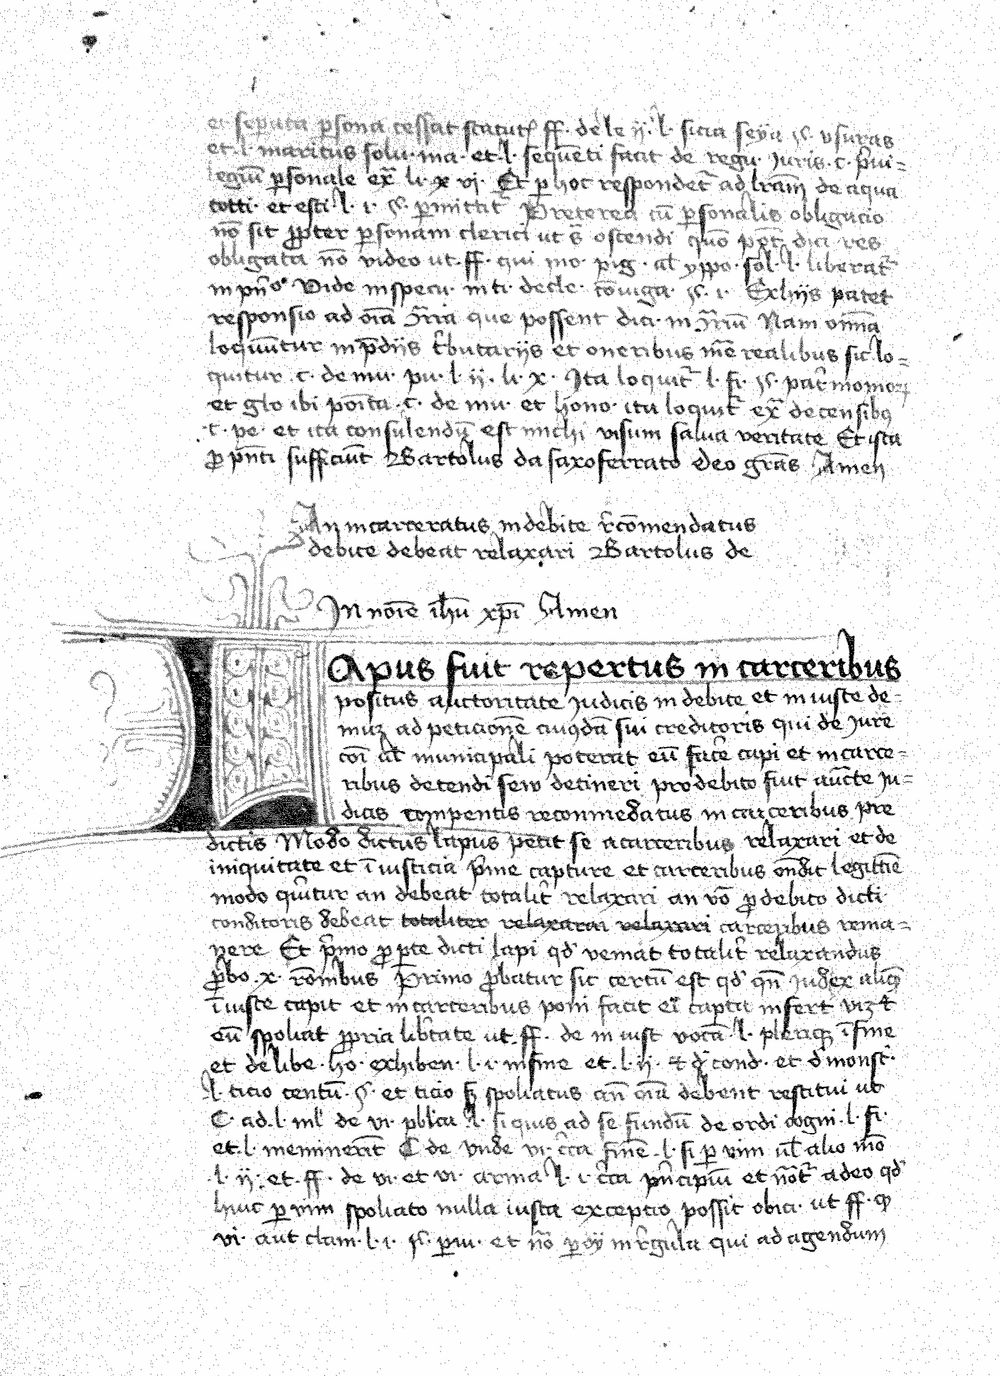 et sepata psona cessat statut ff. de le ii. l. sicia seya §. usuras
et. l. maritus solu. ma. et. l. sequēti facit de regu. iuris. c. pui-
legiū psonale ex. li. x vi. Et p hoc respondet ad lram de aqua
totti. et est l. i. §. pmittit Preterea cū psonalis obligacio
nō sit ppter psonam clerici ut s ostendi quō pōt dici res
obligata nō video ut. ff. qui mo. pig. al yppo. sol. l. liberat
in pno Vide in specu. in ti. de cle. coniuga. §. i. Ex hiis patet
responsio ad oīa 9ria que possent dici. in 9riū Nam omia
loquūntur in pdiis tbutariis et oneribus mē realibus sic lo-
quitur. c. de mu. pu. l. ii. li. x. Ita loquit l. fi. §. patrimonior
et glo ibi poīta. c. de mu. et hono. ita loquit ex de censibus
c. pe. et ita consulendū est michi visum salua veritate Et ista
p pnti sufficiūt Bartolus da saxoferrato deo gras Amen
An incarceratus indebite rcōmendatus
debite debeat relaxari Bartolus de
In noīe ihū xpī Amen
LApus fuit repertus in carceribus
positus auctoritate judicis indebite et iniuste de-
muz ad peticionē cuiusdā sui creditoris qui de jure
coī al municipali poterat eū facē capi et incarce-
ribus detendi sew detineri pro debito fuit aucte ju-
dicis competentis recommēdatus in carceribus pre
dictis Modo dictus lapus petit se a carceribus relaxari et de
iniquitate et īiusticia pme capture et carceribus ondit legittīe
modo quitur an debeat totalit relaxari an vō p debito dicti
conditoris debeat totaliter relaxarai relaxari carceribus rema-
nere Et pmo p pte dicti lapi qd veniat totalit relaxandus
pbo. x. rōnibus Primo pbatur sic certū est qd qn judex aliqu
īiuste capit et in carceribus poni facit eī capta infert viz et
eū spoliat ppria libtate ut. ff. de in iust vocā. l. plerique ī fine
et de libe. ho. exhiben. l. i. in fine et. l. ii. et de cond. et demonst.
l. ticio centū. §. et ticio sz spoliatus an oīa debent restitui ut
C. ad. l. iul de vi. pblica l. si quis ad se fundū de ordi cogni. l. fi.
et. l. meminerīt C de vnde vi. cca finē. l. si p vim ul alio mō
l. ii. et. ff. de vi. et vi. arma l. i. cca principiū et nōt adeo qd
huic p vim spoliato nulla iusta exceptio possit obici. ut ff. q
vi. aut clam. l. i. §. pui. et nō pdij in regula qui ad agendum